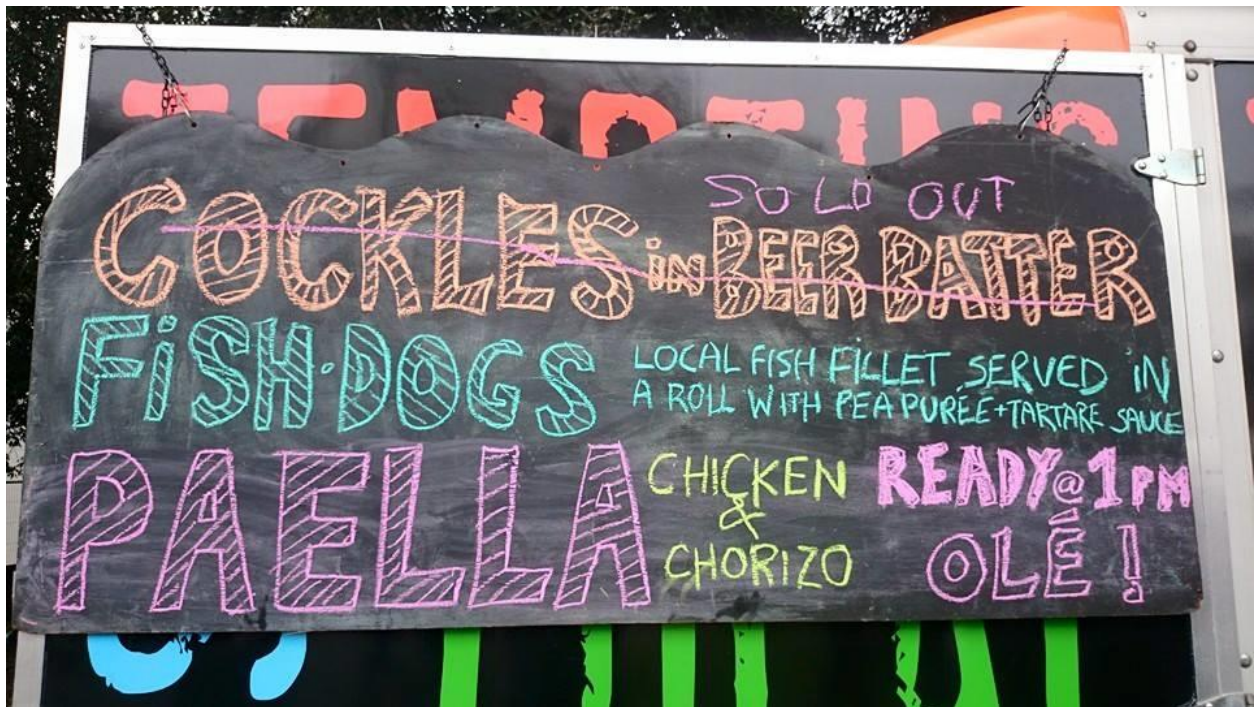 SOLD OUT
COCKLES iN BEER BATTER
FiSH·DOGS
LOCAL FISH FILLET SERVED iN
A ROLL WITH PEA PURÉE+TARTARE SAUCE
PAELLA
CHICKEN
&
CHORIZO
READY@1PM
OLÉ!